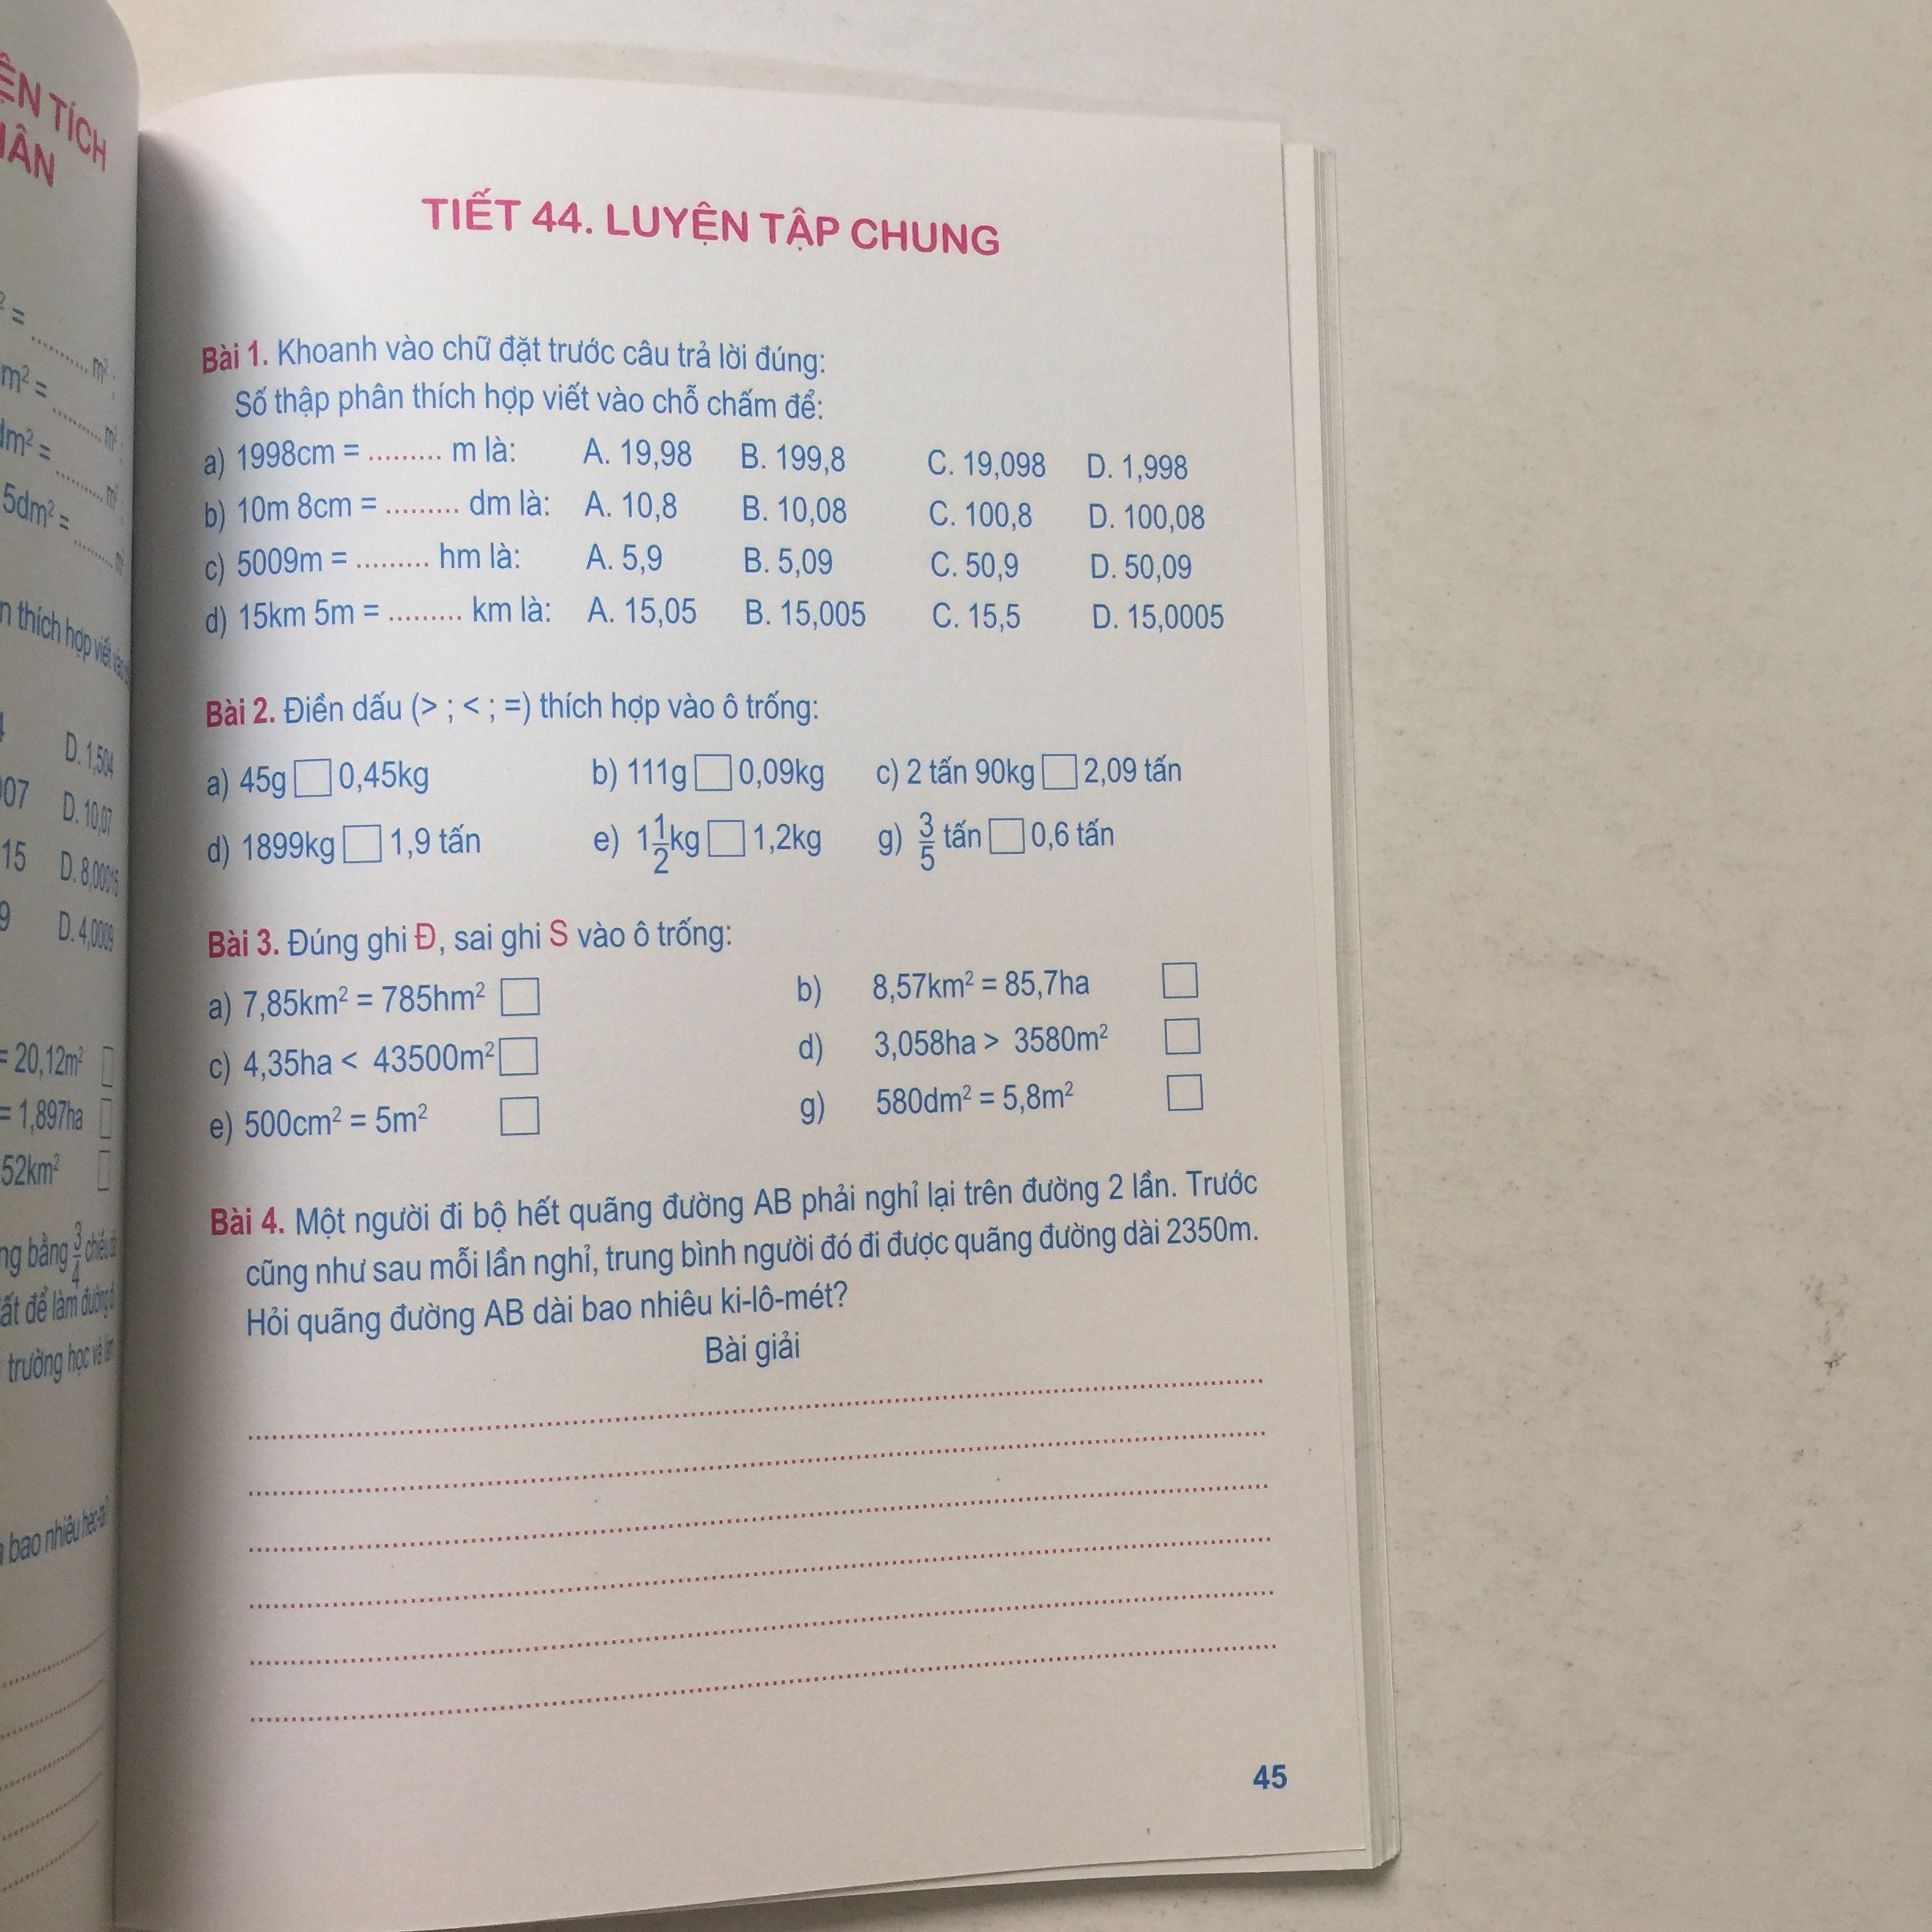 ỆN TÍCH
HÂN
² = ......... m² ;
m² = ......... m² ;
dm² = ......... m² ;
5dm² = ......... m²
n thích hợp viết vào
D. 1,504
007 D. 10,07
15 D. 8,00015
9 D. 4,0009
= 20,12m² □
= 1,897ha □
52km² □
ng bằng 3/4 chiều dài
ất để làm đường đ
trường học và làm
bao nhiêu héc-ta
TIẾT 44. LUYỆN TẬP CHUNG
Bài 1. Khoanh vào chữ đặt trước câu trả lời đúng:
Số thập phân thích hợp viết vào chỗ chấm để:
a) 1998cm = ......... m là: A. 19,98 B. 199,8 C. 19,098 D. 1,998
b) 10m 8cm = ......... dm là: A. 10,8 B. 10,08 C. 100,8 D. 100,08
c) 5009m = ......... hm là: A. 5,9 B. 5,09 C. 50,9 D. 50,09
d) 15km 5m = ......... km là: A. 15,05 B. 15,005 C. 15,5 D. 15,0005
Bài 2. Điền dấu (> ; < ; =) thích hợp vào ô trống:
a) 45g □ 0,45kg b) 111g □ 0,09kg c) 2 tấn 90kg □ 2,09 tấn
d) 1899kg □ 1,9 tấn e) 1 1/2 kg □ 1,2kg g) 3/5 tấn □ 0,6 tấn
Bài 3. Đúng ghi Đ, sai ghi S vào ô trống:
a) 7,85km² = 785hm² □ b) 8,57km² = 85,7ha □
c) 4,35ha < 43500m² □ d) 3,058ha > 3580m² □
e) 500cm² = 5m² □ g) 580dm² = 5,8m² □
Bài 4. Một người đi bộ hết quãng đường AB phải nghỉ lại trên đường 2 lần. Trước
cũng như sau mỗi lần nghỉ, trung bình người đó đi được quãng đường dài 2350m.
Hỏi quãng đường AB dài bao nhiêu ki-lô-mét?
Bài giải
45